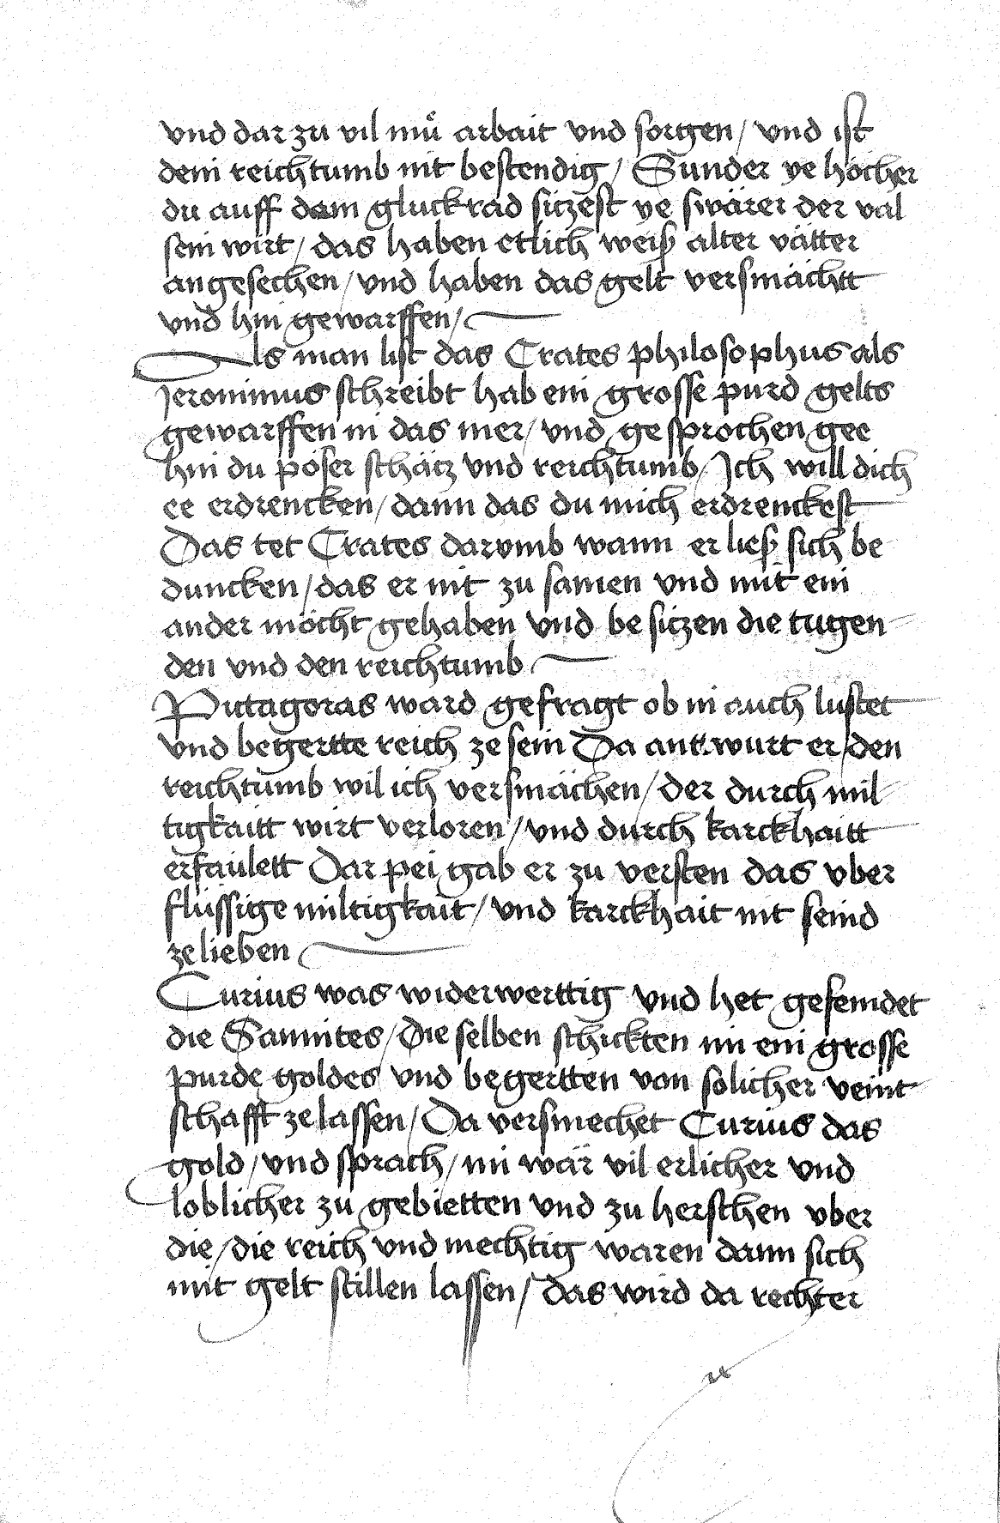 vnd dar zu vil muͤ arbait vnd sorgen / vnd ist
dein reichtumb nit bestendig / Sunder ye höcher
du auff dam gluckrad siczest ye swärer der val
sein wirt / das haben etlich weiß alter vätter
angesechen / vnd haben das gelt versmächtt
vnd hin gewarffen /
Als man list das Crates philosophus als
Jeronimus schreibt hab ein grosse purd gelts
gewarffen in das mer / vnd gesprochen gee
hin du pöser schätz vnd reichtumb / Ich will dich
ee erdrencken / dann das du mich erdrenckest
Das tet Crates darvmb wann er ließ sich be
duncken / das er nit zu samen vnd mit ein
ander möcht gehaben vnd besiczen die tugen
den vnd den reichtumb
Pittagoras ward gefragt ob in auch lustet
vnd begertte reich ze sein Da antwurt er / den
reichtumb wil ich versmächen / der durch mil
tigkaitt wirt verloren / vnd durch karckhaitt
erfaulett Dar pei gab er zu versten das vber
flüssige miltigkait / vnd karckhait nit seind
ze lieben
Curius was widerwerttig vnd het gefeindet
die Samnites / die selben schickten im ein grosse
purde goldes vnd begertten von solicher veint
schafft ze lassen / Da versmechet Curius das
gold / vnd sprach / im wär vil erlicher vnd
loblicher zu gebietten vnd zu herschen vber
die / die reich vnd mechtig waren dann sich
mit gelt stillen lassen / das wird da rechter